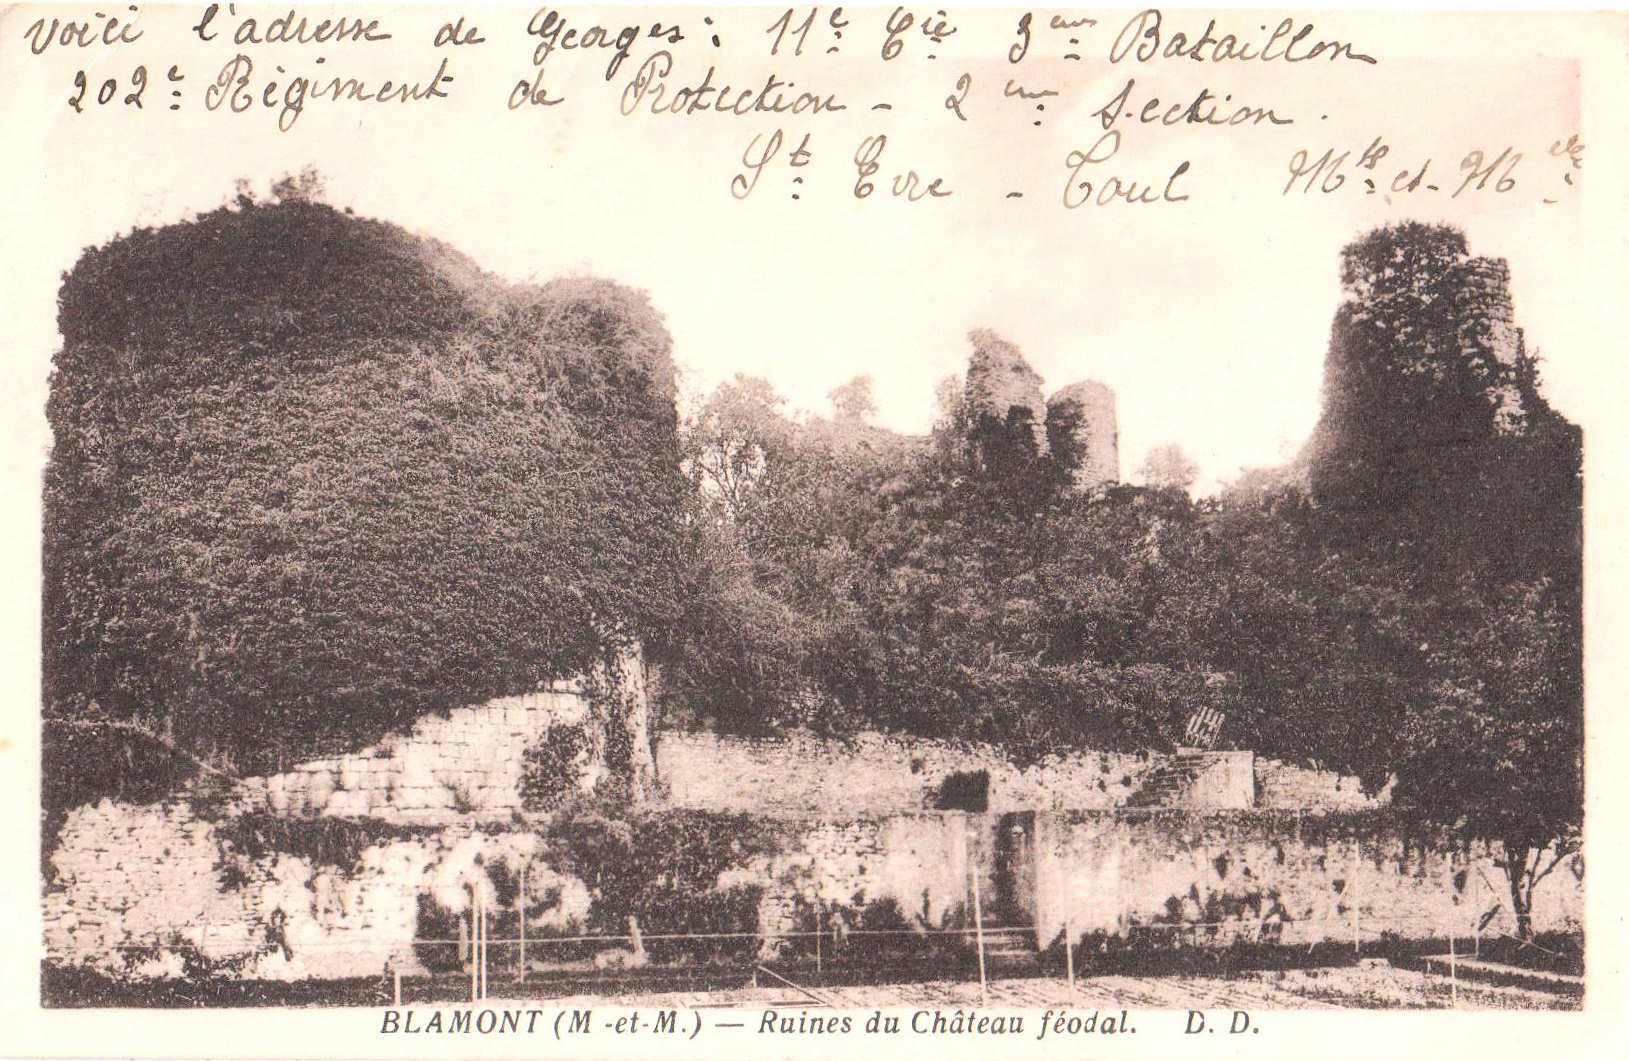 Voici l'adresse de Georges : 11e Cie 3eme Bataillon
202e Régiment de Protection - 2eme Section.
St Evre - Toul Mthe et - Mlle
BLAMONT (M -et-M.) — Ruines du Château féodal. D. D.